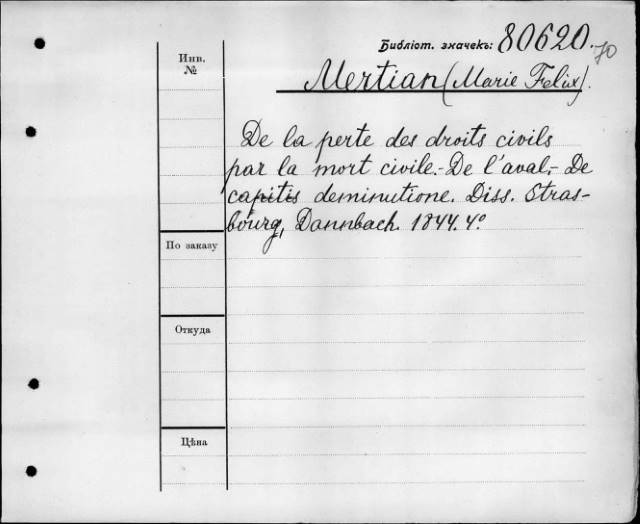 Библіот. значекъ: 80620. 70
Инв.
№
Mertian (Marie Felix).
De la perte des droits civils
par la mort civile.- De l'aval.- De
capitis deminutione. Diss. Stras-
bourg, Dannbach. 1844. 4º
По заказу
Откуда
Цѣна